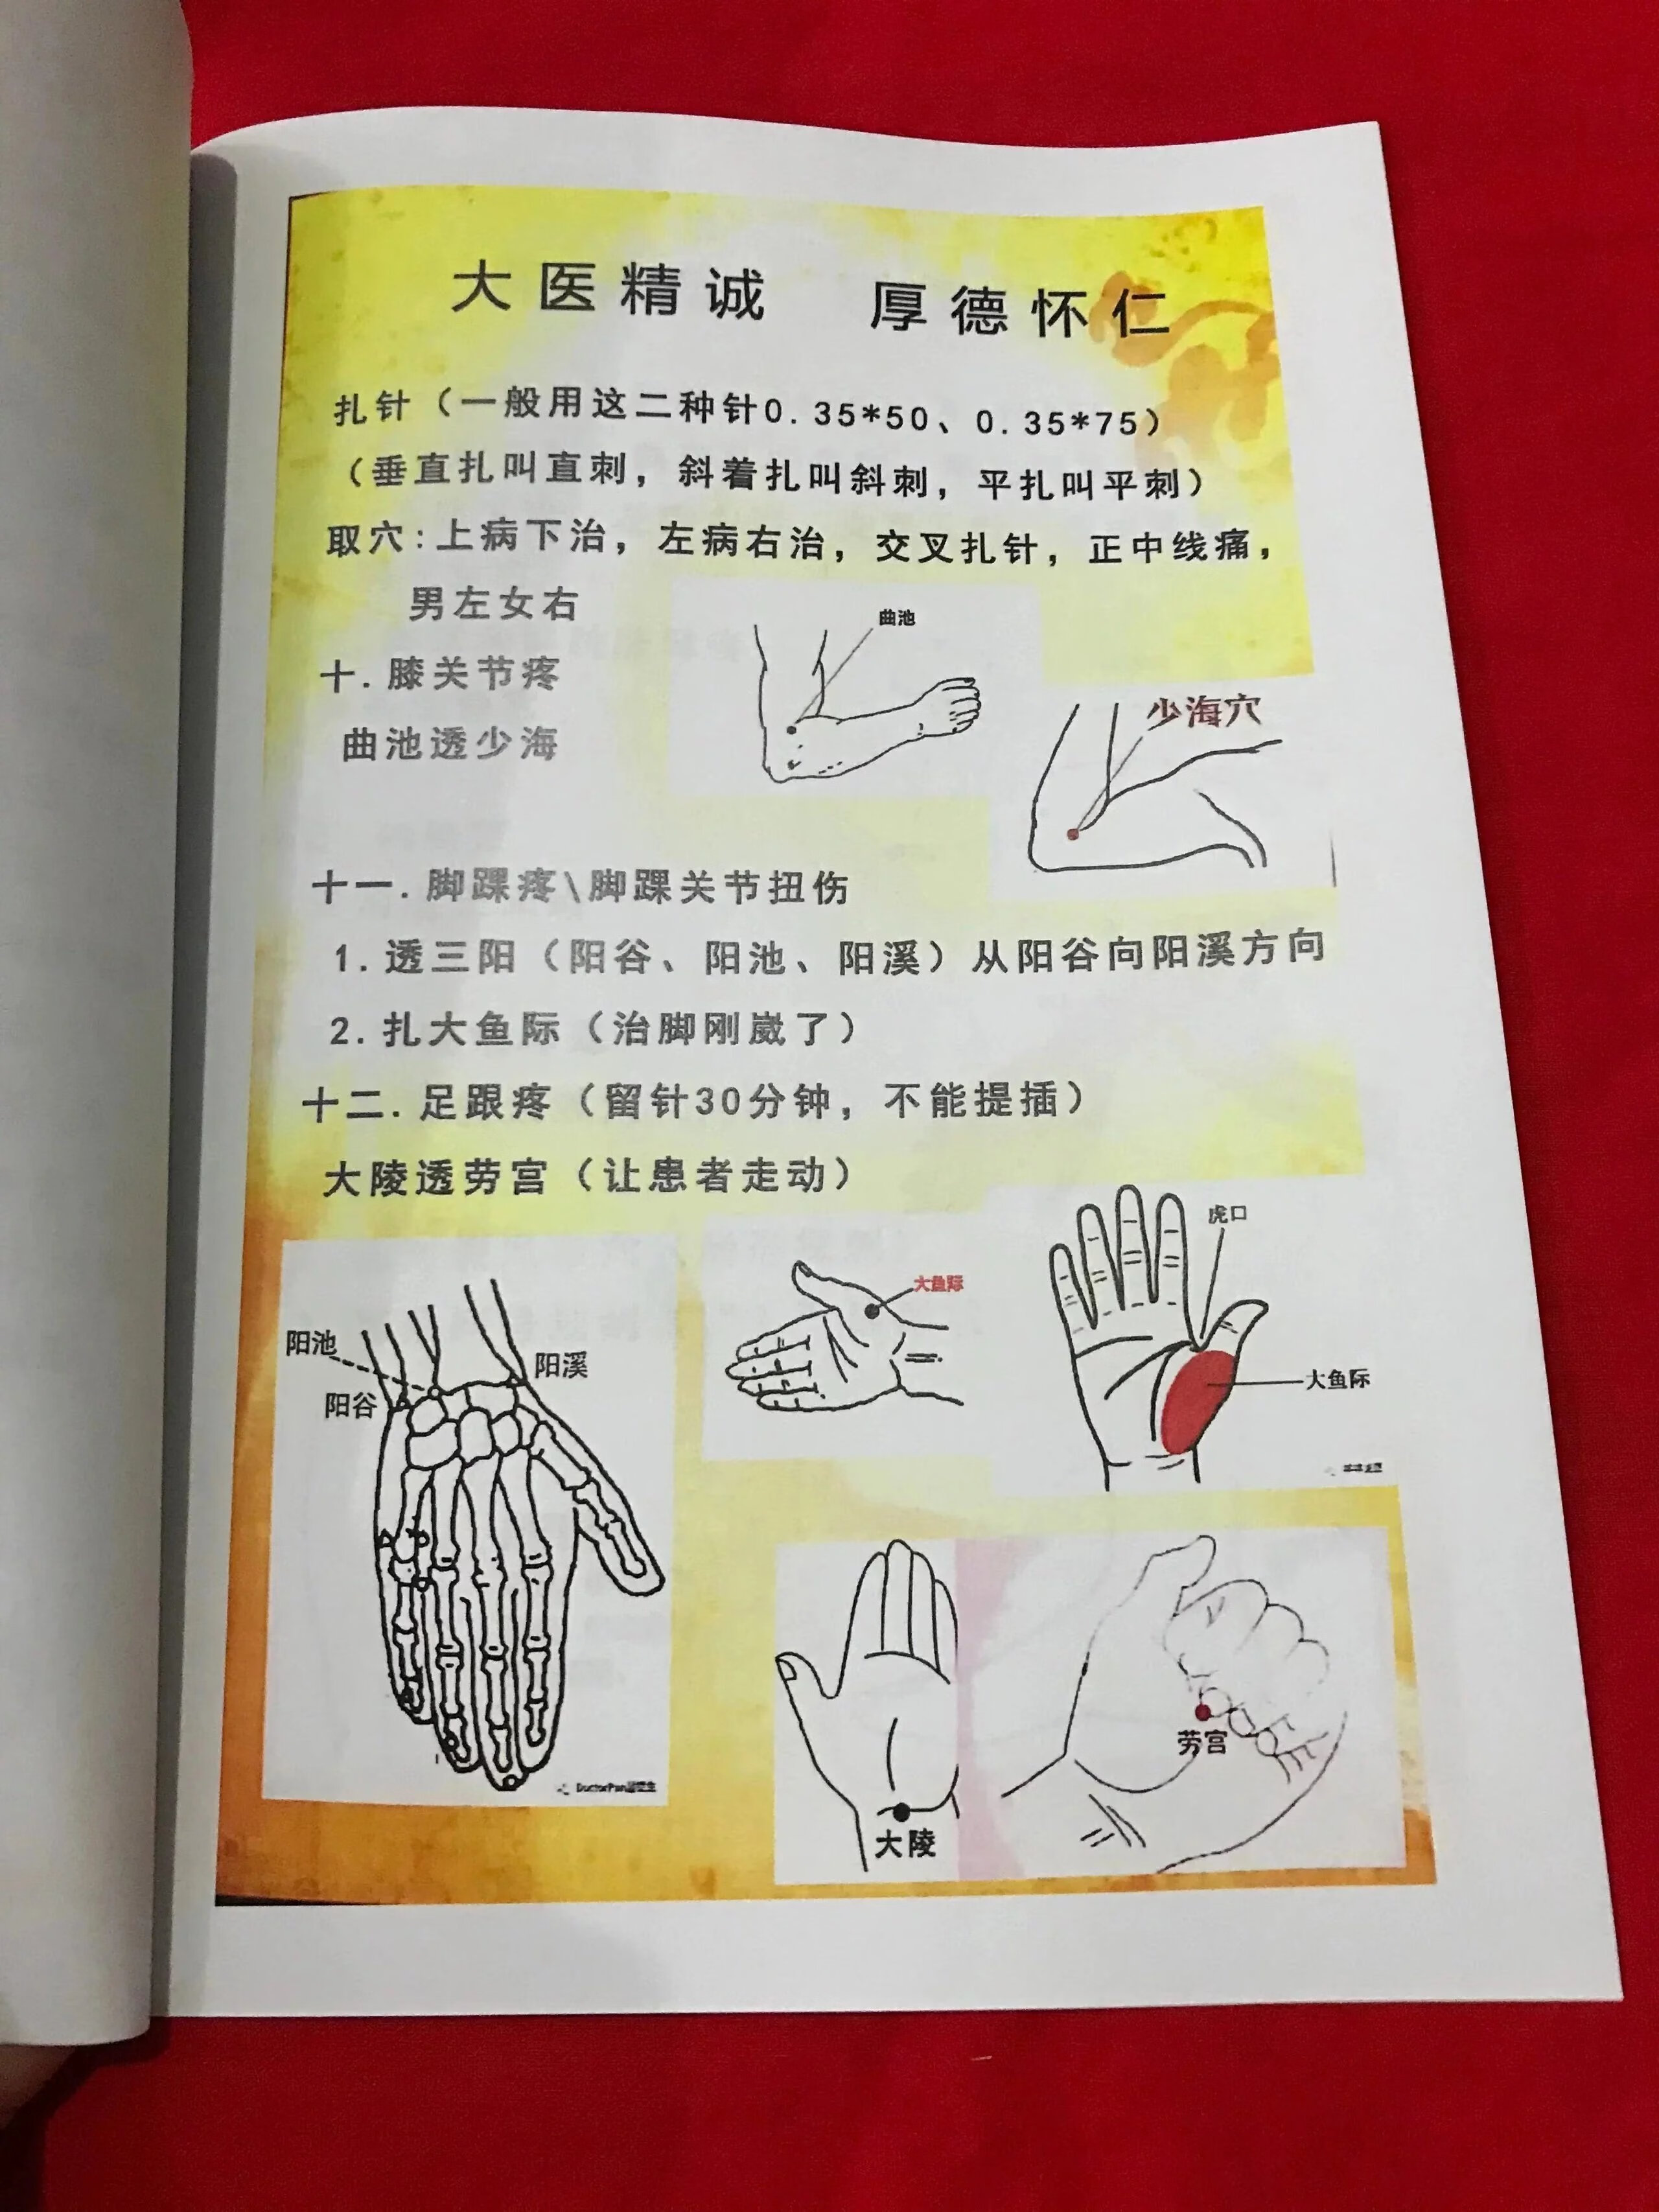 大医精诚　厚德怀仁
扎针（一般用这二种针0.35*50、0.35*75）
（垂直扎叫直刺，斜着扎叫斜刺，平扎叫平刺）
取穴:上病下治，左病右治，交叉扎针，正中线痛，
男左女右
曲池
十.膝关节疼
少海穴
曲池透少海
十一.脚踝疼\脚踝关节扭伤
1.透三阳（阳谷、阳池、阳溪）从阳谷向阳溪方向
2.扎大鱼际（治脚刚崴了）
十二.足跟疼（留针30分钟，不能提插）
大陵透劳宫（让患者走动）
虎口
大鱼际
阳池
阳溪
大鱼际
阳谷
劳宫
DoctorPan
大陵